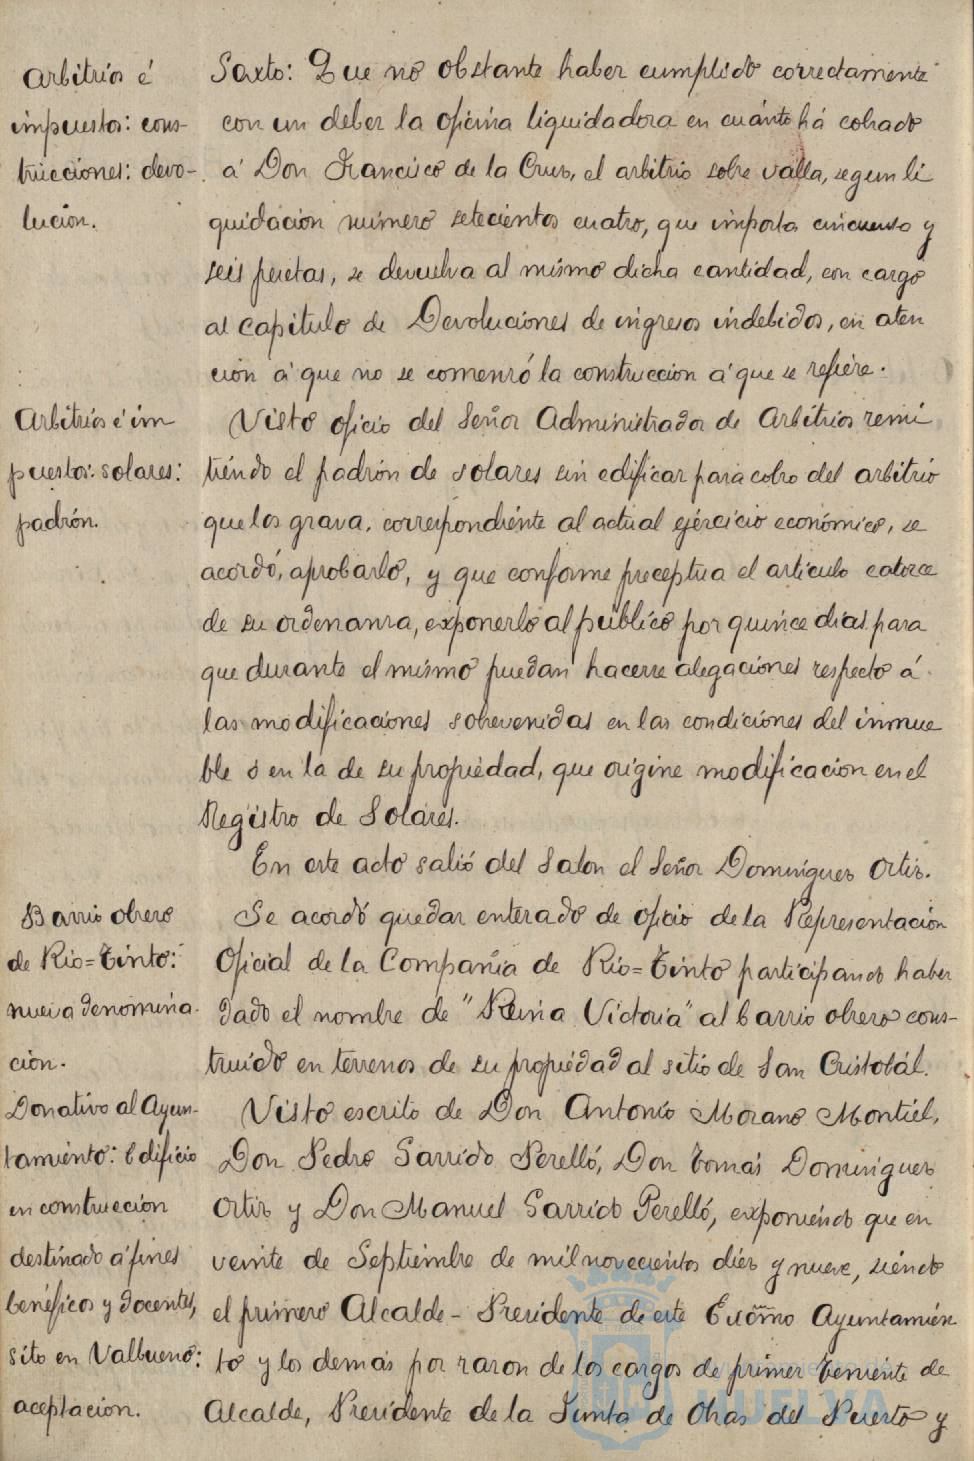 Arbitrios é
impuestos: cons-
trucciones: devo-
lución.
Sexto: Que no obstante haber cumplido correctamente
con un deber la oficina liquidadora en cuánto há cobrado
á Don Francisco de la Cruz, el arbitrio sobre valla, segun li
quidación número setecientos cuatro, que importa cincuenta y
seis pesetas, se devuelva al mismo dicha cantidad, con cargo
al capitulo de Devoluciones de ingresos indebidos, en aten
ción á que no se comenzó la construccion á que se refiere.
Arbitrios é im
puestos: solares:
padrón.
Visto oficio del Señor Administrador de Arbitrios remi
tiendo el padrón de solares sin edificar para cobro del arbitrio
que los grava, correspondiente al actual ejercicio económico, se
acordó, aprobarlo, y que conforme preceptua el articulo catorce
de su ordenanza, exponerlo al público por quince dias para
que durante el mismo puedan hacerse alegaciones respecto á
las modificaciones sobrevenidas en las condiciones del inmue
ble ó en la de su propiedad, que origine modificacion en el
Registro de Solares.
En este acto salió del Salon el Señor Dominguez Ortiz.
Barrio obrero
de Rio=Tinto:
nueva denomina-
ción.
Se acordó quedar enterado de oficio de la Representacion
Oficial de la Compañia de Rio=Tinto participando haber
dado el nombre de "Reina Victoria" al barrio obrero cons-
truido en terrenos de su propiedad al sitio de San Cristobál.
Donativo al Ayun-
tamiento: Edificio
en construccion
destinado á fines
benéficos y docentes,
sito en Valbueno:
aceptacion.
Visto escrito de Don Antonio Morano Montiel,
Don Pedro Garrido Perelló, Don Tomás Dominguez
Ortiz y Don Manuel Garrido Perelló, exponiendo que en
veinte de Septiembre de mil novecientos diez y nueve, siendo
el primero Alcalde-Presidente de este Excmo Ayuntamien
to y los demás por razon de los cargos de primer Teniente de
Alcalde, Presidente de la Junta de Obras del Puerto y
HUELVA